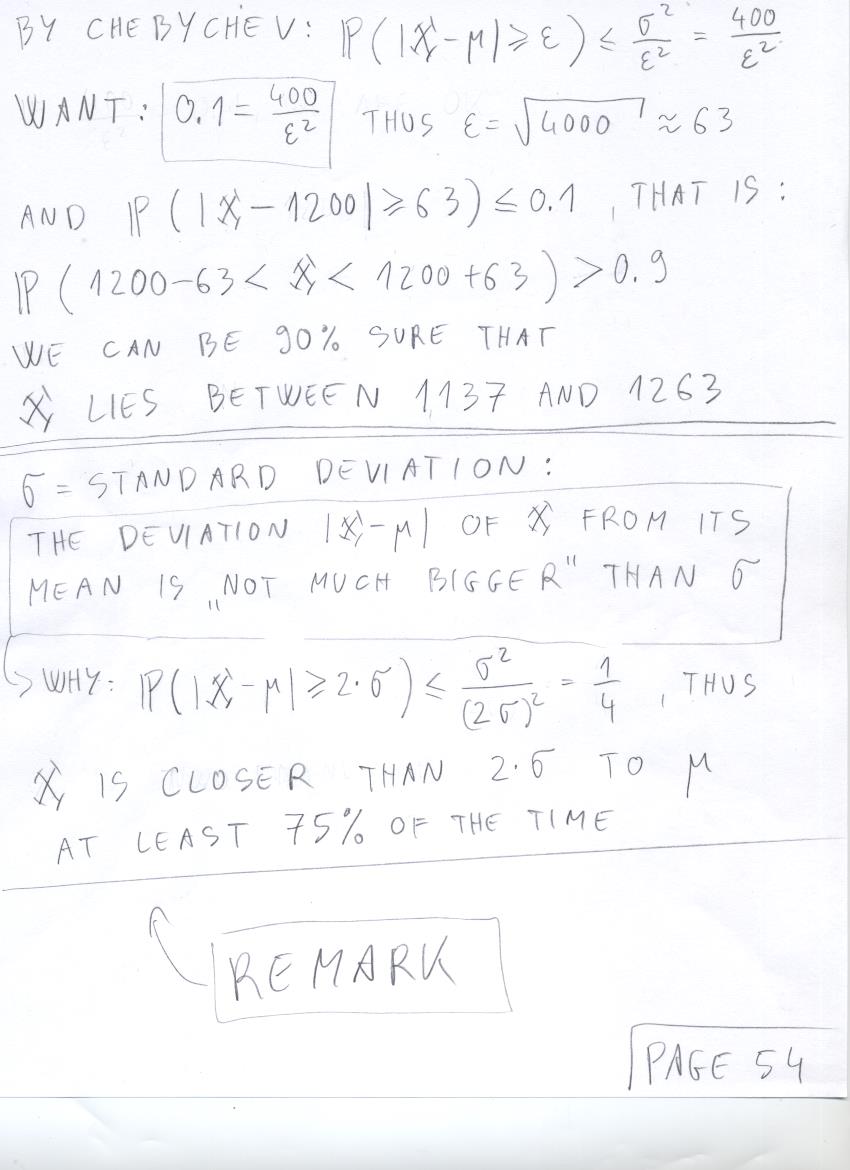 BY CHEBYCHEV: ℙ(|X-μ|≥ε) ≤ σ²/ε² = 400/ε²
WANT: 0.1 = 400/ε² THUS ε = √4000 ≈ 63
AND ℙ(|X-1200|≥63) ≤ 0.1, THAT IS:
ℙ(1200-63 < X < 1200+63) > 0.9
WE CAN BE 90% SURE THAT
X LIES BETWEEN 1137 AND 1263
σ = STANDARD DEVIATION:
THE DEVIATION |X-μ| OF X FROM ITS
MEAN IS „NOT MUCH BIGGER" THAN σ
→ WHY: ℙ(|X-μ|≥2·σ) ≤ σ²/(2σ)² = 1/4, THUS
X IS CLOSER THAN 2·σ TO μ
AT LEAST 75% OF THE TIME
REMARK
PAGE 54